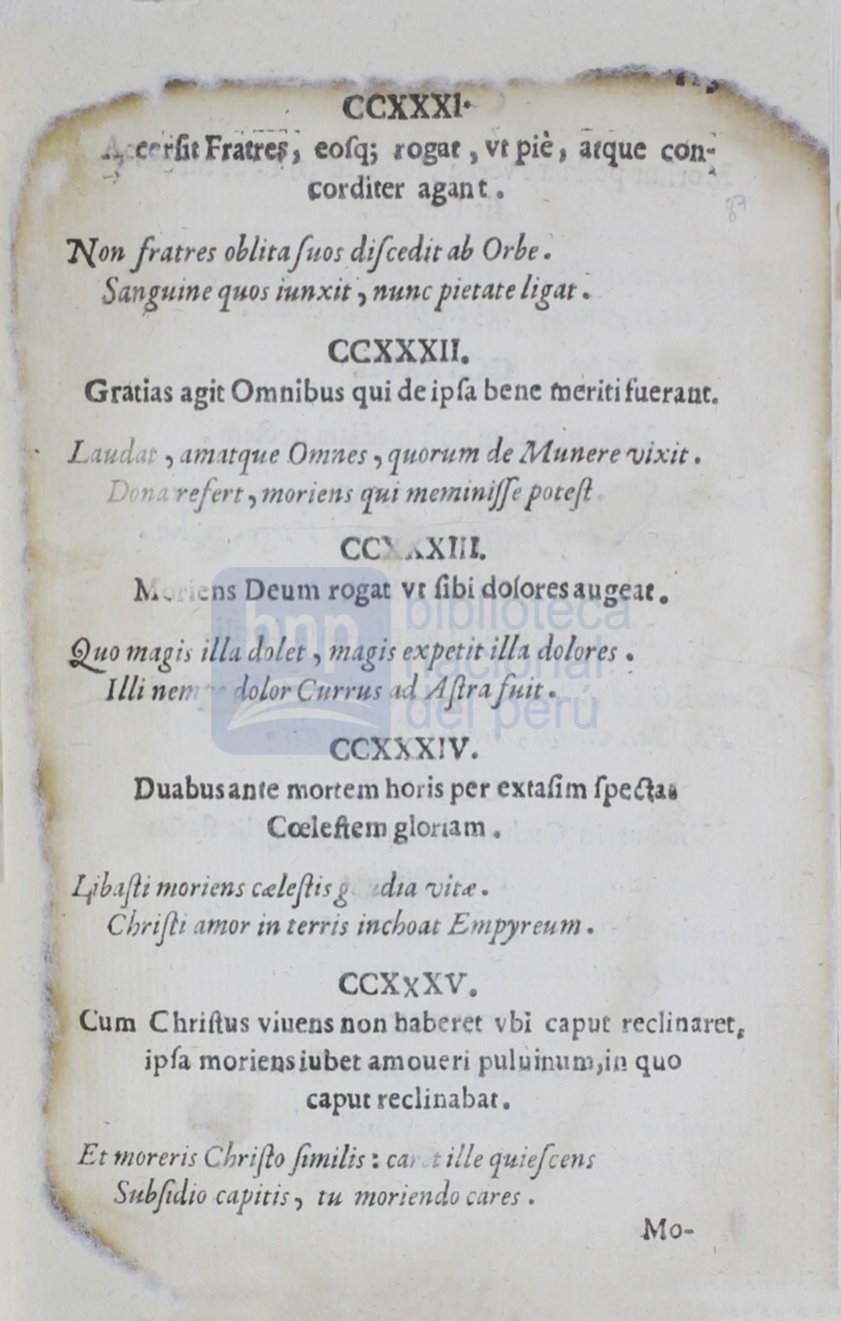 CCXXXI.
Fratres, eosq; rogat, vt piè, atque con-
corditer agant.
Non fratres oblita suos discedit ab Orbe.
Sanguine quos iunxit, nunc pietate ligat.
CCXXXII.
Gratias agit Omnibus qui de ipsa bene meriti fuerant.
Laudat, amatque Omnes, quorum de Munere vixit.
Dona refert, moriens qui meminisse potest.
CCXXXIII.
Moriens Deum rogat vt sibi dolores augeat.
Quo magis illa dolet, magis expetit illa dolores.
Illi nempe dolor Currus ad Astra fuit.
bnp biblioteca
nacional
del perú
CCXXXIV.
Duabus ante mortem horis per extasim spectat
Cœlestem gloriam.
Libasti moriens cælestis gaudia vitæ.
Christi amor in terris inchoat Empyreum.
CCXXXV.
Cum Christus viuens non haberet vbi caput reclinaret,
ipsa moriens iubet amoueri puluinum, in quo
caput reclinabat.
Et moreris Christo similis: caret ille quiescens
Subsidio capitis, tu moriendo cares.
Mo-
87